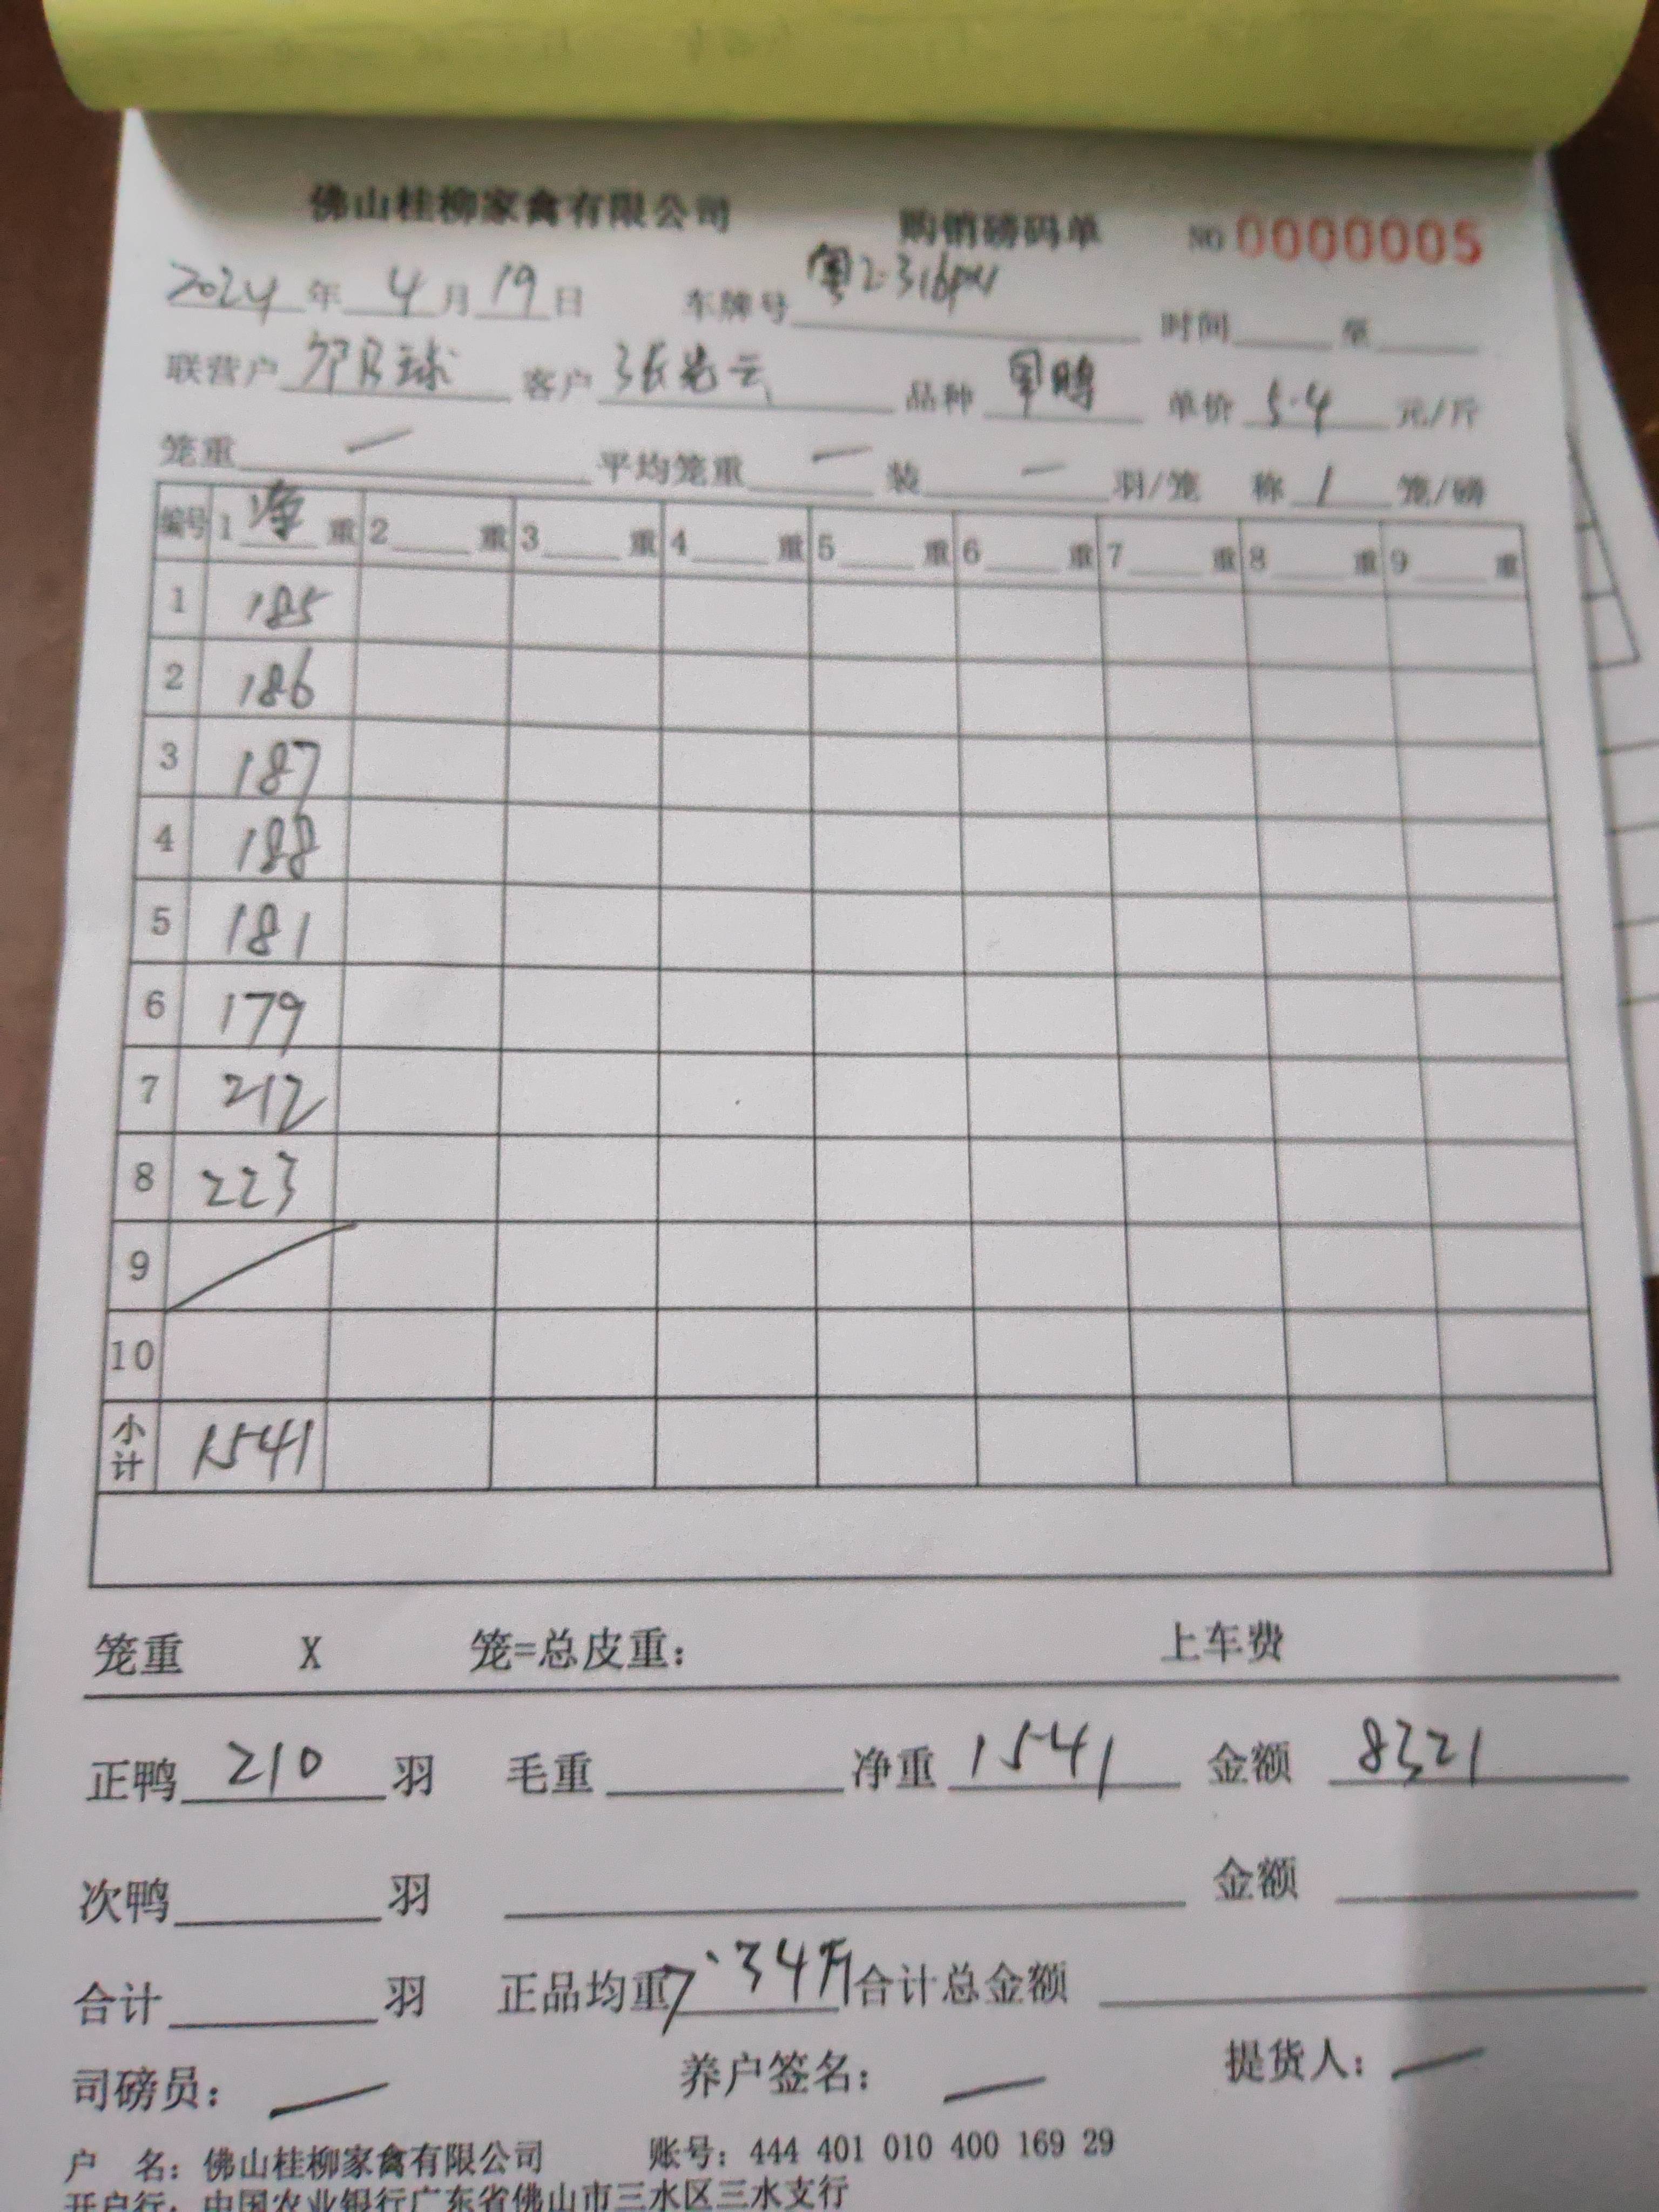 佛山桂柳家禽有限公司 购销磅码单 NO 0000005
2024 年 4 月 19 日 车牌号 粤Z·316 时间 至
联营户 邓月球 客户 张光云 品种 单价 5.4 元/斤
笼重 一 平均笼重 一 装 一 羽/笼 称 1 笼/磅
编号 1 净 重 2 重 3 重 4 重 5 重 6 重 7 重 8 重 9 重
1 185
2 186
3 187
4 188
5 181
6 179
7 212
8 223
9
10
小计 1541
笼重 X 笼=总皮重: 上车费
正鸭 210 羽 毛重 净重 1541 金额 8321
次鸭 羽 金额
合计 羽 正品均重 7.34斤 合计总金额
司磅员: 一 养户签名: 一 提货人: 一
户 名: 佛山桂柳家禽有限公司 账号: 444 401 010 400 169 29
开户行: 中国农业银行广东省佛山市三水区三水支行